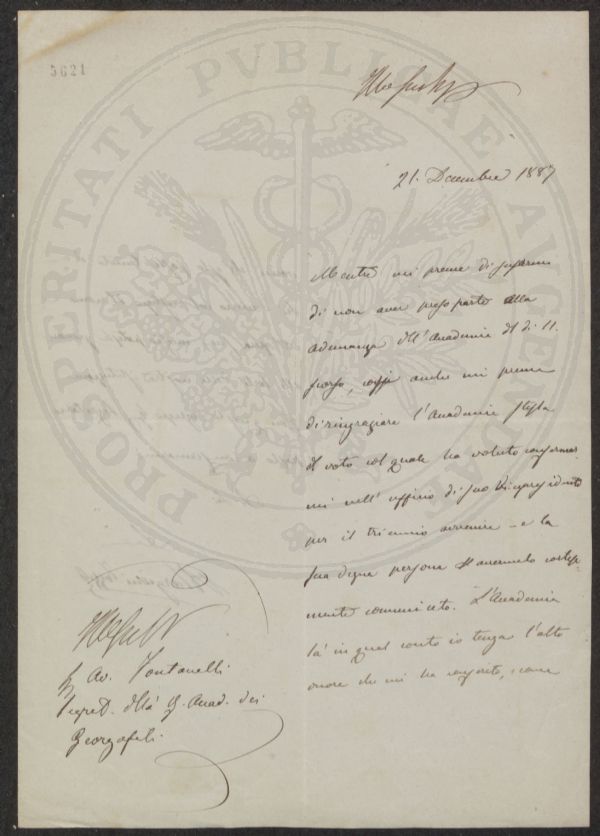 5621
PROSPERITATI PVBLICAE AVGENDAE
21. Decembre 1887
Mentre mi preme di
di non aver preso parte alla
adunanza dell' Academia del dì 11.
corso, così anche mi preme
di ringraziare l'Academia stessa
del voto col quale ha voluto confermar
mi nell' uffizio di suo Vicepresidente
per il triennio avvenire - e la
sua degna persona avermelo cortese
mente comunicato. L'Academia
sa in qual conto io tenga l'alto
onore che mi ha, come
Av. Fontanelli
Segret. della R. Acad. dei
Georgofili.